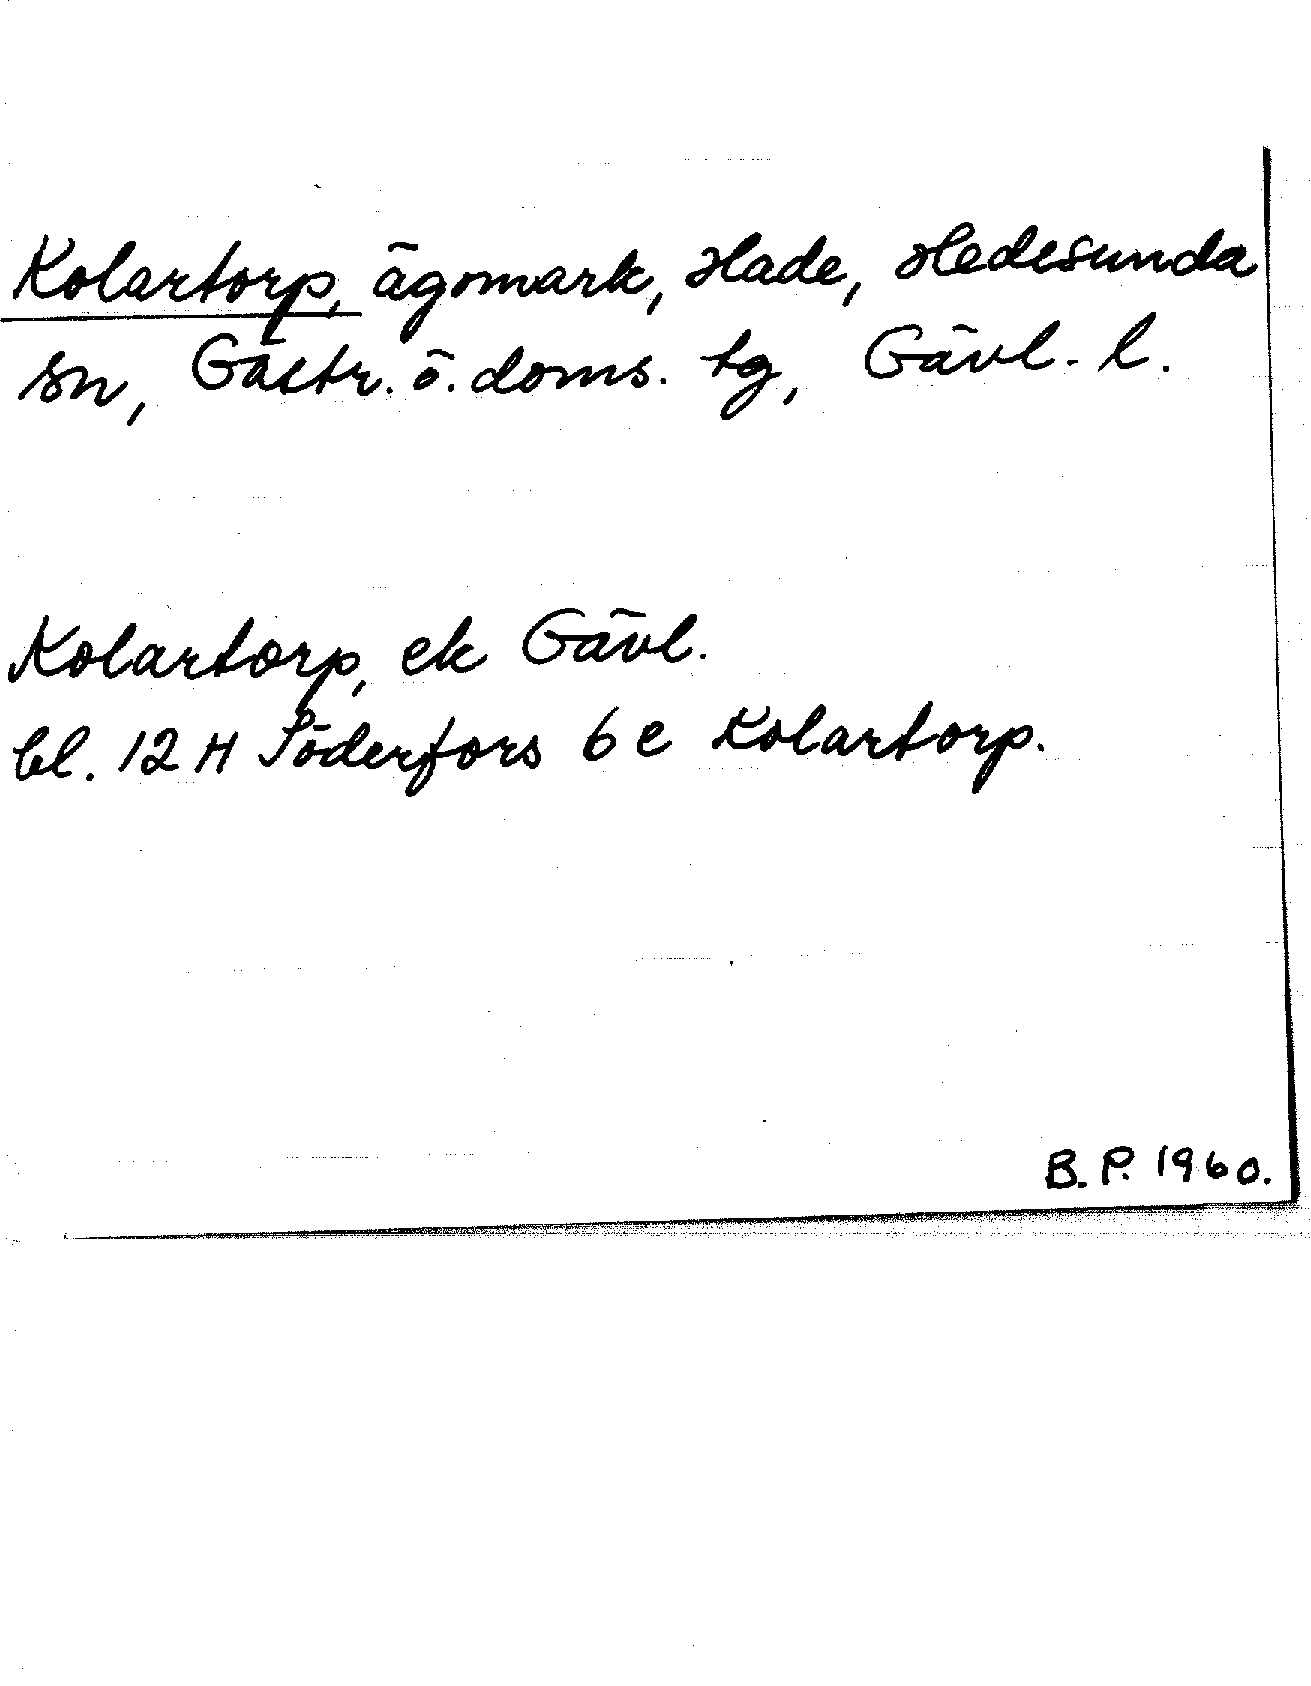 Kolartorp, ägomark, Hade, Hedesunda
sn, Gästr. ö. doms. tg, Gävl. l.
Kolartorp, ek Gävl.
bl. 12 H Söderfors 6 e Kolartorp.
B. P. 1960.